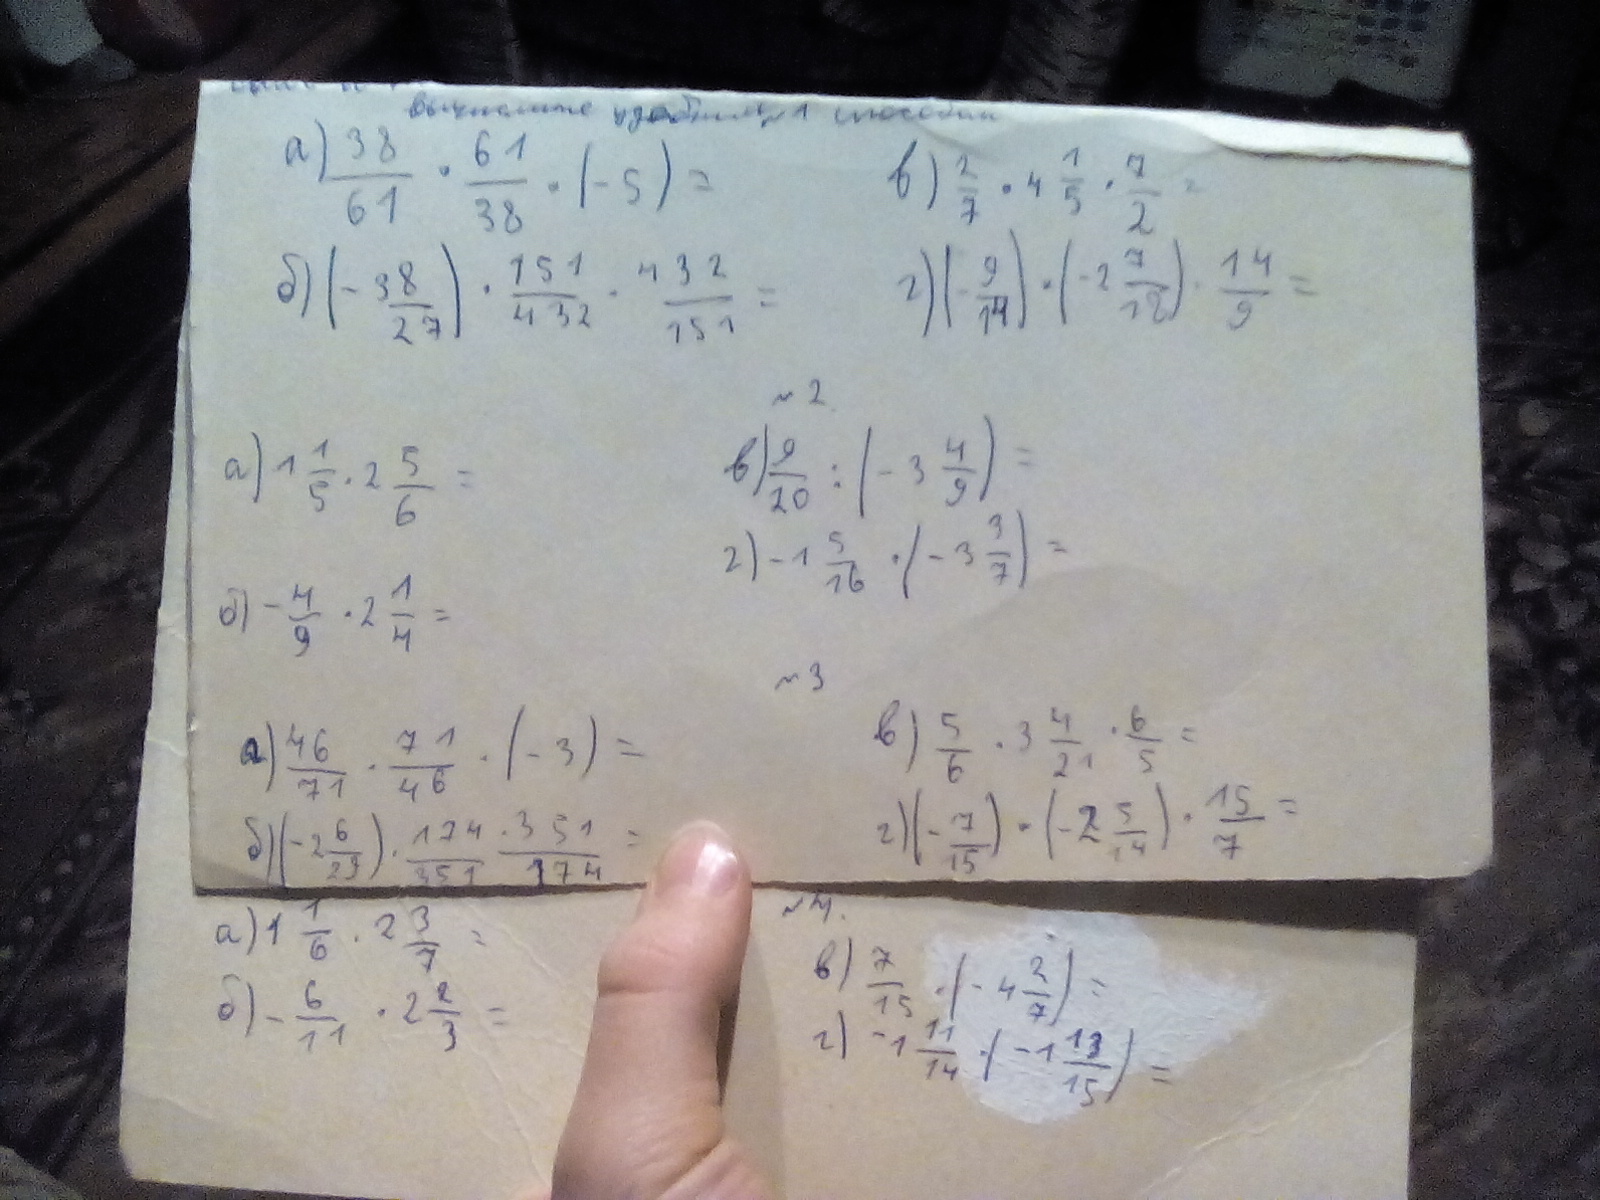 вычислите удобным способом
а) 38/61 · 61/38 · (-5) =
в) 2/7 · 4 1/5 · 7/2 =
б) (-3 8/27) · 151/432 · 432/151 =
г) (-9/14) · (-2 7/12) · 14/9 =
№2
а) 1 1/5 · 2 5/6 =
в) 9/20 : (-3 4/9) =
г) -1 5/16 · (-3 3/7) =
б) -4/9 · 2 1/4 =
№3
а) 46/71 · 71/46 · (-3) =
в) 5/6 · 3 4/21 · 6/5 =
б) (-2 6/29) · 174/351 · 351/174 =
г) (-7/15) · (-2 5/14) · 15/7 =
№4.
а) 1 1/6 · 2 3/7 =
в) 7/15 · (-4 2/7) =
б) -6/11 · 2 2/3 =
г) -1 11/14 · (-1 13/15) =